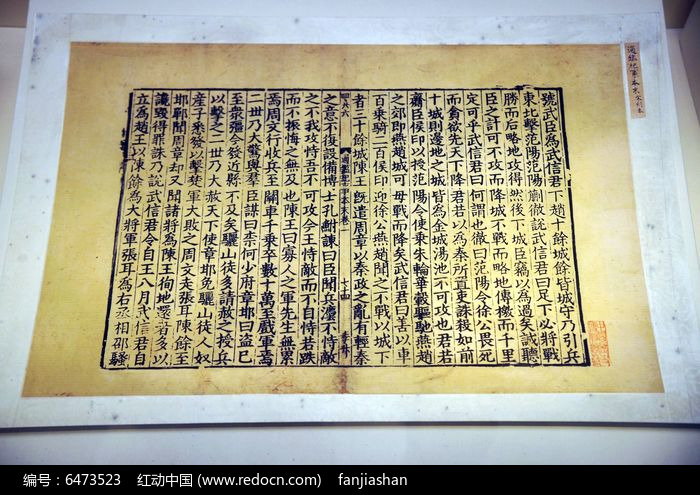 通鑑紀事本末宋刊本
號武臣爲武信君下趙十餘城餘皆城守乃引兵
東北擊范陽范陽蒯徹說武信君曰足下必將戰
勝而后略地攻得然後下城臣竊以爲過矣誠聽
臣之計可不攻而降城不戰而略地傳檄而千里
定可乎武信君曰何謂也徹曰范陽令徐公畏死
而貪欲先天下降君君若以爲秦所置吏誅殺如前
十城則邊地之城皆爲金城湯池不可攻也君若
齎臣侯印以授范陽令使乘朱輪華轂驅馳燕趙
之郊即燕趙城可毋戰而降矣武信君曰善以車
百乘騎二百侯印迎徐公燕趙聞之不戰以城下
者三十餘城陳王既遣周章以秦政之亂有輕秦
通鑑紀事本末卷一
七十四
之意不復設備博士孔鮒諫曰臣聞兵灋不恃敵
之不我攻恃吾不可攻今王恃敵而不自恃若跌
而不振悔之無及也陳王曰寡人之軍先生無累
焉周文行收兵至關車千乘卒數十萬至戲軍焉
二世乃大驚與羣臣謀曰柰何少府章邯曰盜已
至衆彊今發近縣不及矣驪山徒多請赦之授兵
以擊之二世乃大赦天下使章邯免驪山徒人奴
產子悉發以擊楚軍大敗之周文走張耳陳餘至
邯鄲聞周章却又聞諸將爲陳王徇地還者多以
讒毀得罪誅乃說武信君令自王八月武信君自
立爲趙王以陳餘爲大將軍張耳爲右丞相邵騷
编号：6473523 红动中国 (www.redocn.com) fanjiashan